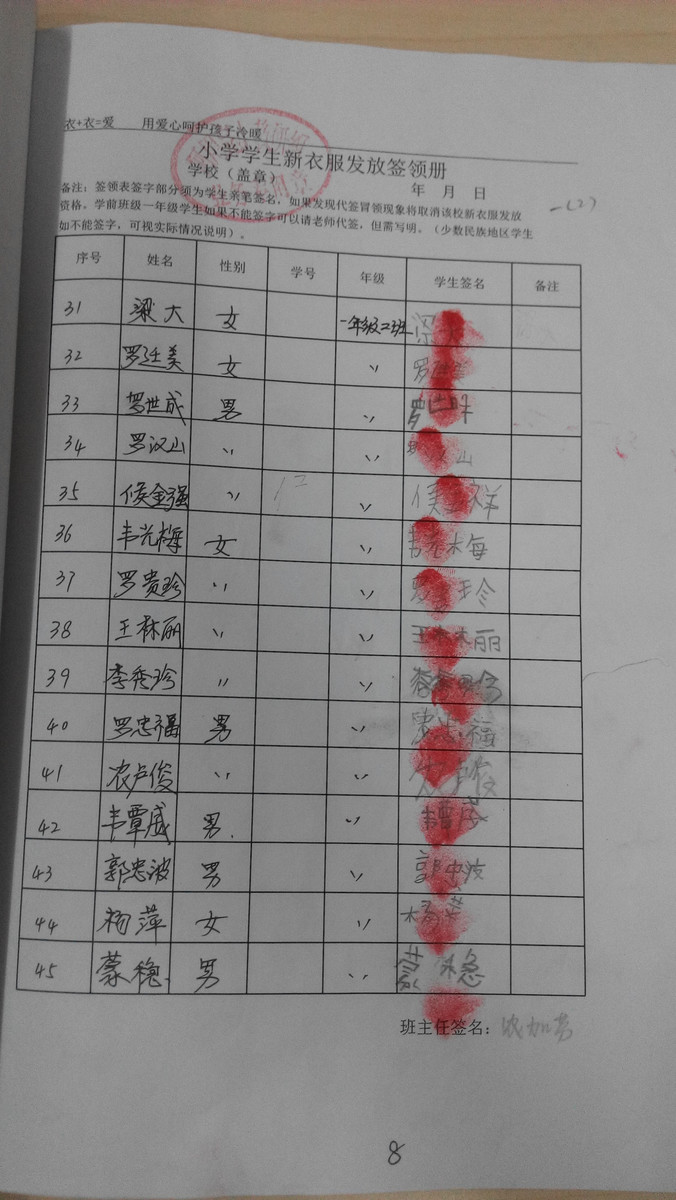 衣+衣=爱 用爱心呵护孩子冷暖
小学学生新衣服发放签领册
学校（盖章） 年 月 日
备注：签领表签字部分须为学生亲笔签名，如果发现代签冒领现象将取消该校新衣服发放
资格。学前班级一年级学生如果不能签字可以请老师代签，但需写明。（少数民族地区学生
如不能签字，可视实际情况说明）。
一(2)
序号 姓名 性别 学号 年级 学生签名 备注
31 梁大 女 一年级二班 梁
32 罗廷美 女 〃 罗廷美
33 罗世成 男 〃 罗世
34 罗汉山 〃 〃 山
35 侯金强 〃 〃 侯 祥
36 韦光梅 女 〃 韦光梅
37 罗贵珍 〃 〃 罗 珍
38 王林丽 〃 〃 王林丽
39 李秀珍 〃 〃
40 罗忠福 男 〃 忠福
41 农卢俊 〃 〃 卢
42 韦覃威 男. 〃 韦覃威
43 郭忠波 男 〃 郭忠波
44 杨萍 女 〃 杨
45 蒙稳 男 〃 蒙稳
班主任签名：
8